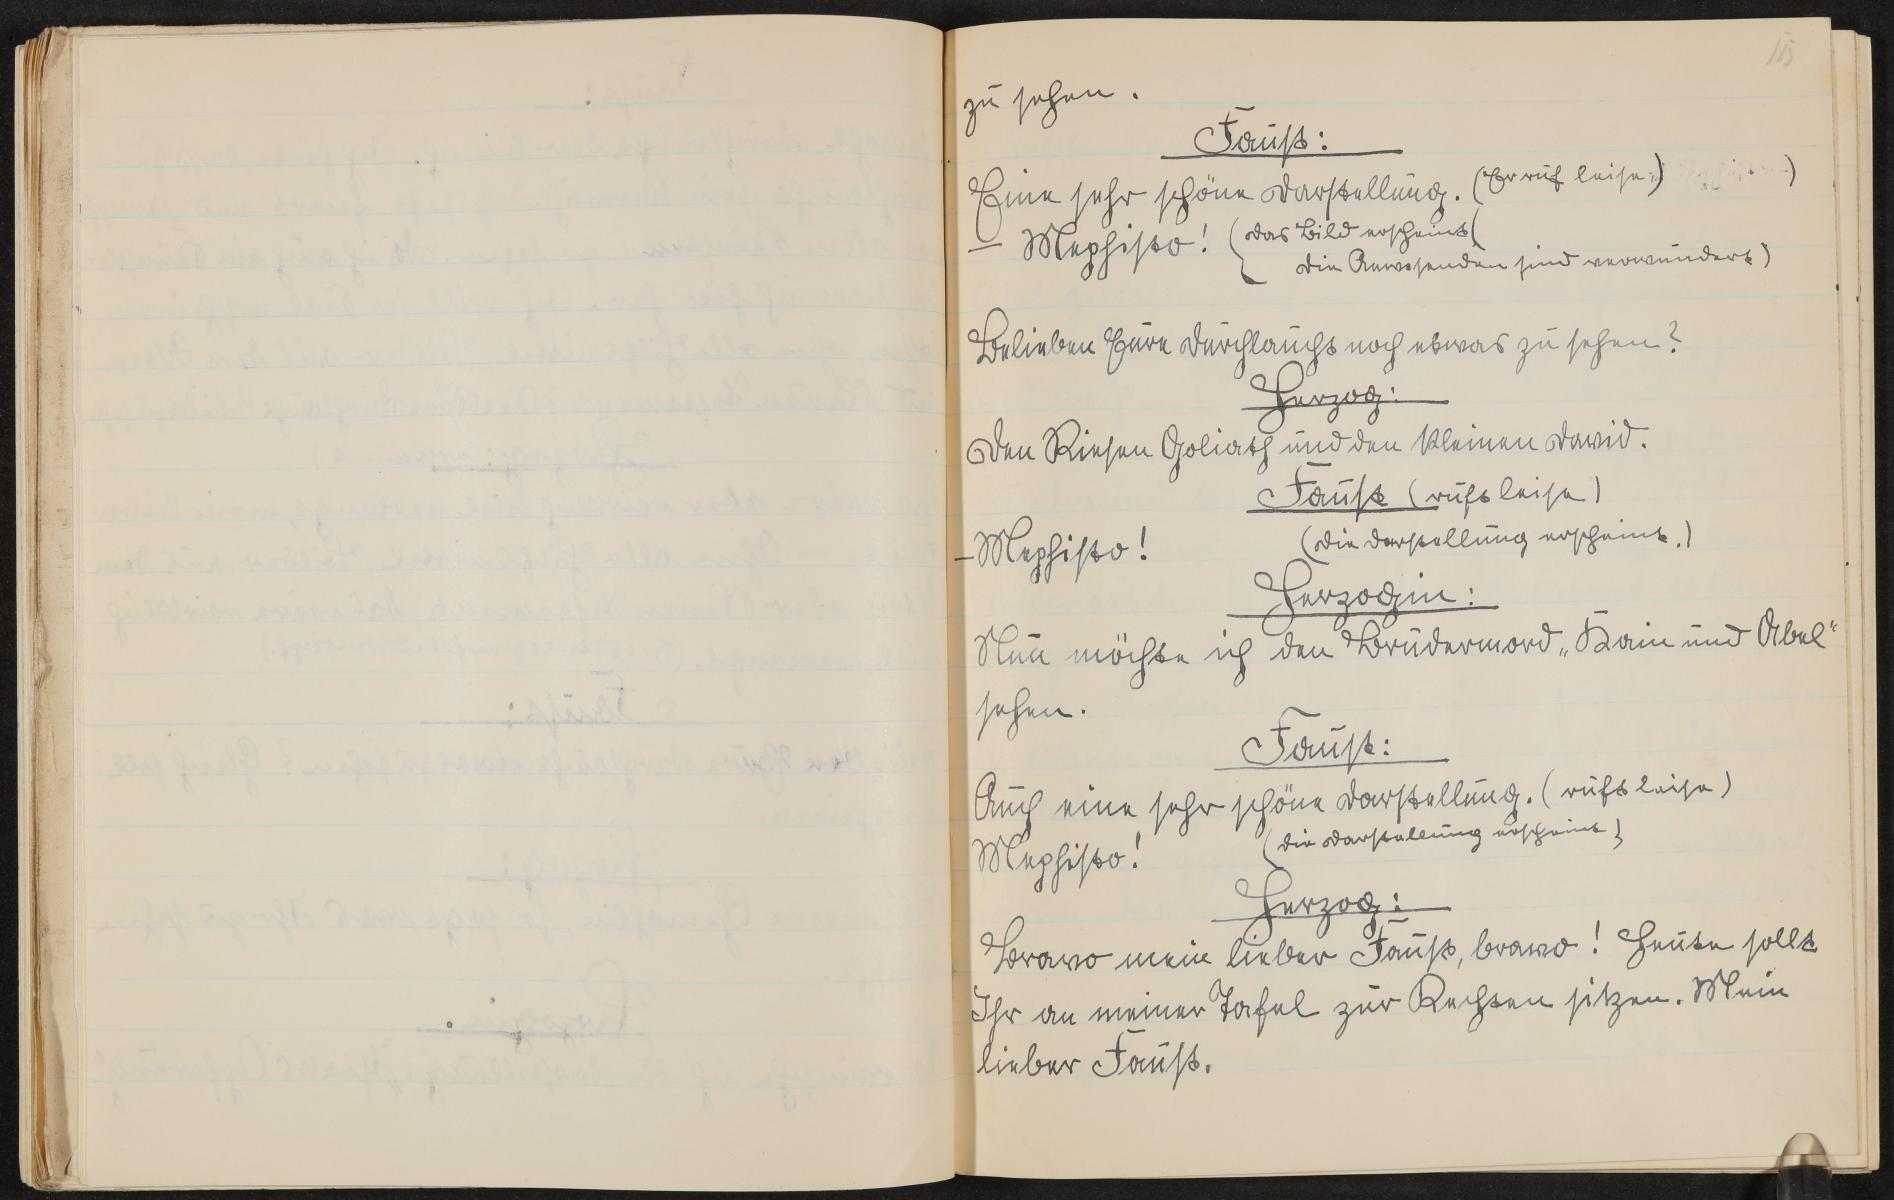 zu sehen.
Faust:
Eine sehr schöne Darstellung. (Er ruf leise:)
– Mephisto! (das Bild erscheint(
die Anwesenden sind verwundert)
Belieben Eure Durchlaucht noch etwas zu sehen?
Herzog:
Den Riesen Goliath und den kleinen David.
Faust (ruft leise)
– Mephisto! (die Darstellung erscheint.)
Herzogin:
Nun möchte ich den Brudermord „Kain und Abel“
sehen.
Faust:
Auch eine sehr schöne Darstellung. (ruft leise)
Mephisto! (die Darstellung erscheint)
Herzog:
Bravo mein lieber Faust, bravo! Heute sollt
Ihr an meiner Tafel zur Rechten sitzen. Mein
lieber Faust.